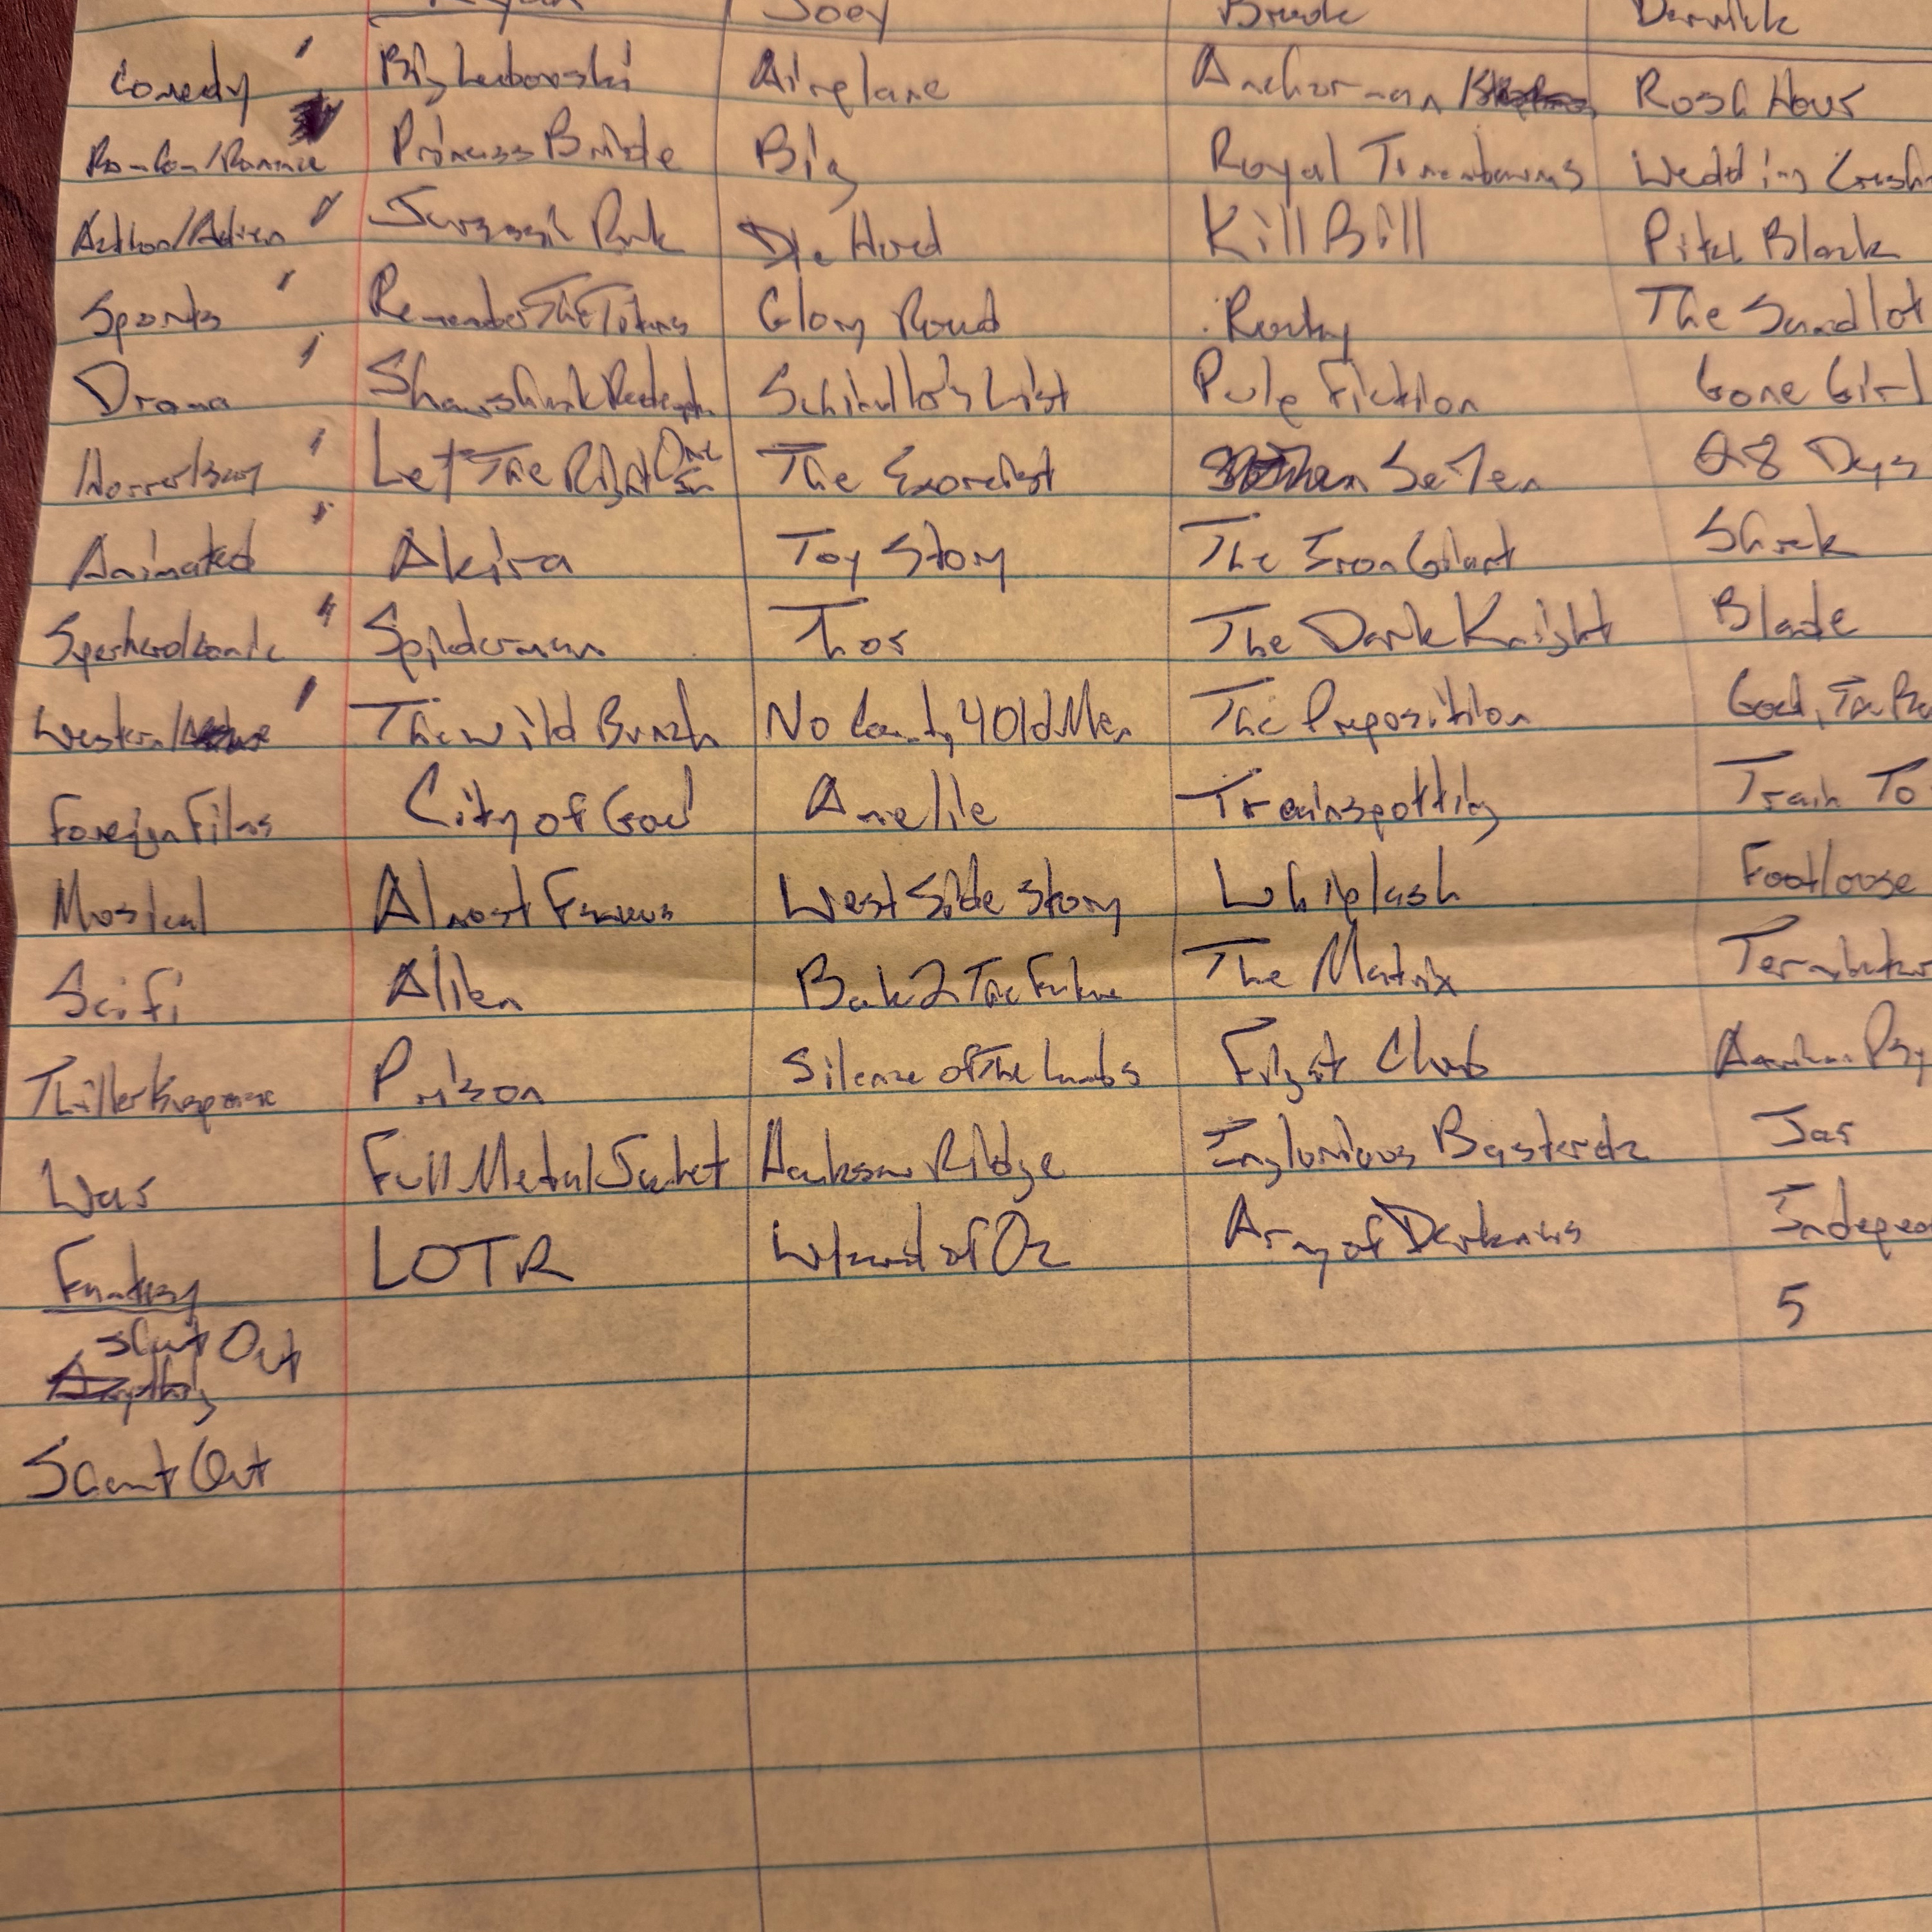 Joey Derrick
Comedy Big Lebowski Airplane Anchorman Rosh Hour
Rom-Com/Romance Princess Bride Big Royal Tenenbaums Wedding Crash
Action/Adven Jurassic Park Die Hard Kill Bill Pitch Black
Sports Remember The Titans Glory Road Rocky The Sandlot
Drama Shawshank Redemption Schindler's List Pulp Fiction Gone Girl
Horror/Scary Let The Right One In The Exorcist Se7en 28 Days
Animated Akira Toy Story The Iron Giant Shrek
Superhero/comic Spiderman Thor The Dark Knight Blade
Western/ The Wild Bunch No Country 4 Old Men The Proposition Good, The Ba
Foreign Films City of God Amelie Trainspotting Train To
Musical Almost Famous West Side Story Whiplash Footloose
Sci.fi Alien Back 2 The Future The Matrix Terminator
Thriller/Suspense Silence of The Lambs Fight Club American Psy
War Full Metal Jacket Hacksaw Ridge Inglorious Basterdz Jar
Fantasy LOTR Wizard of Oz Army of Darkness Indepen
5
Out
Anything
Out